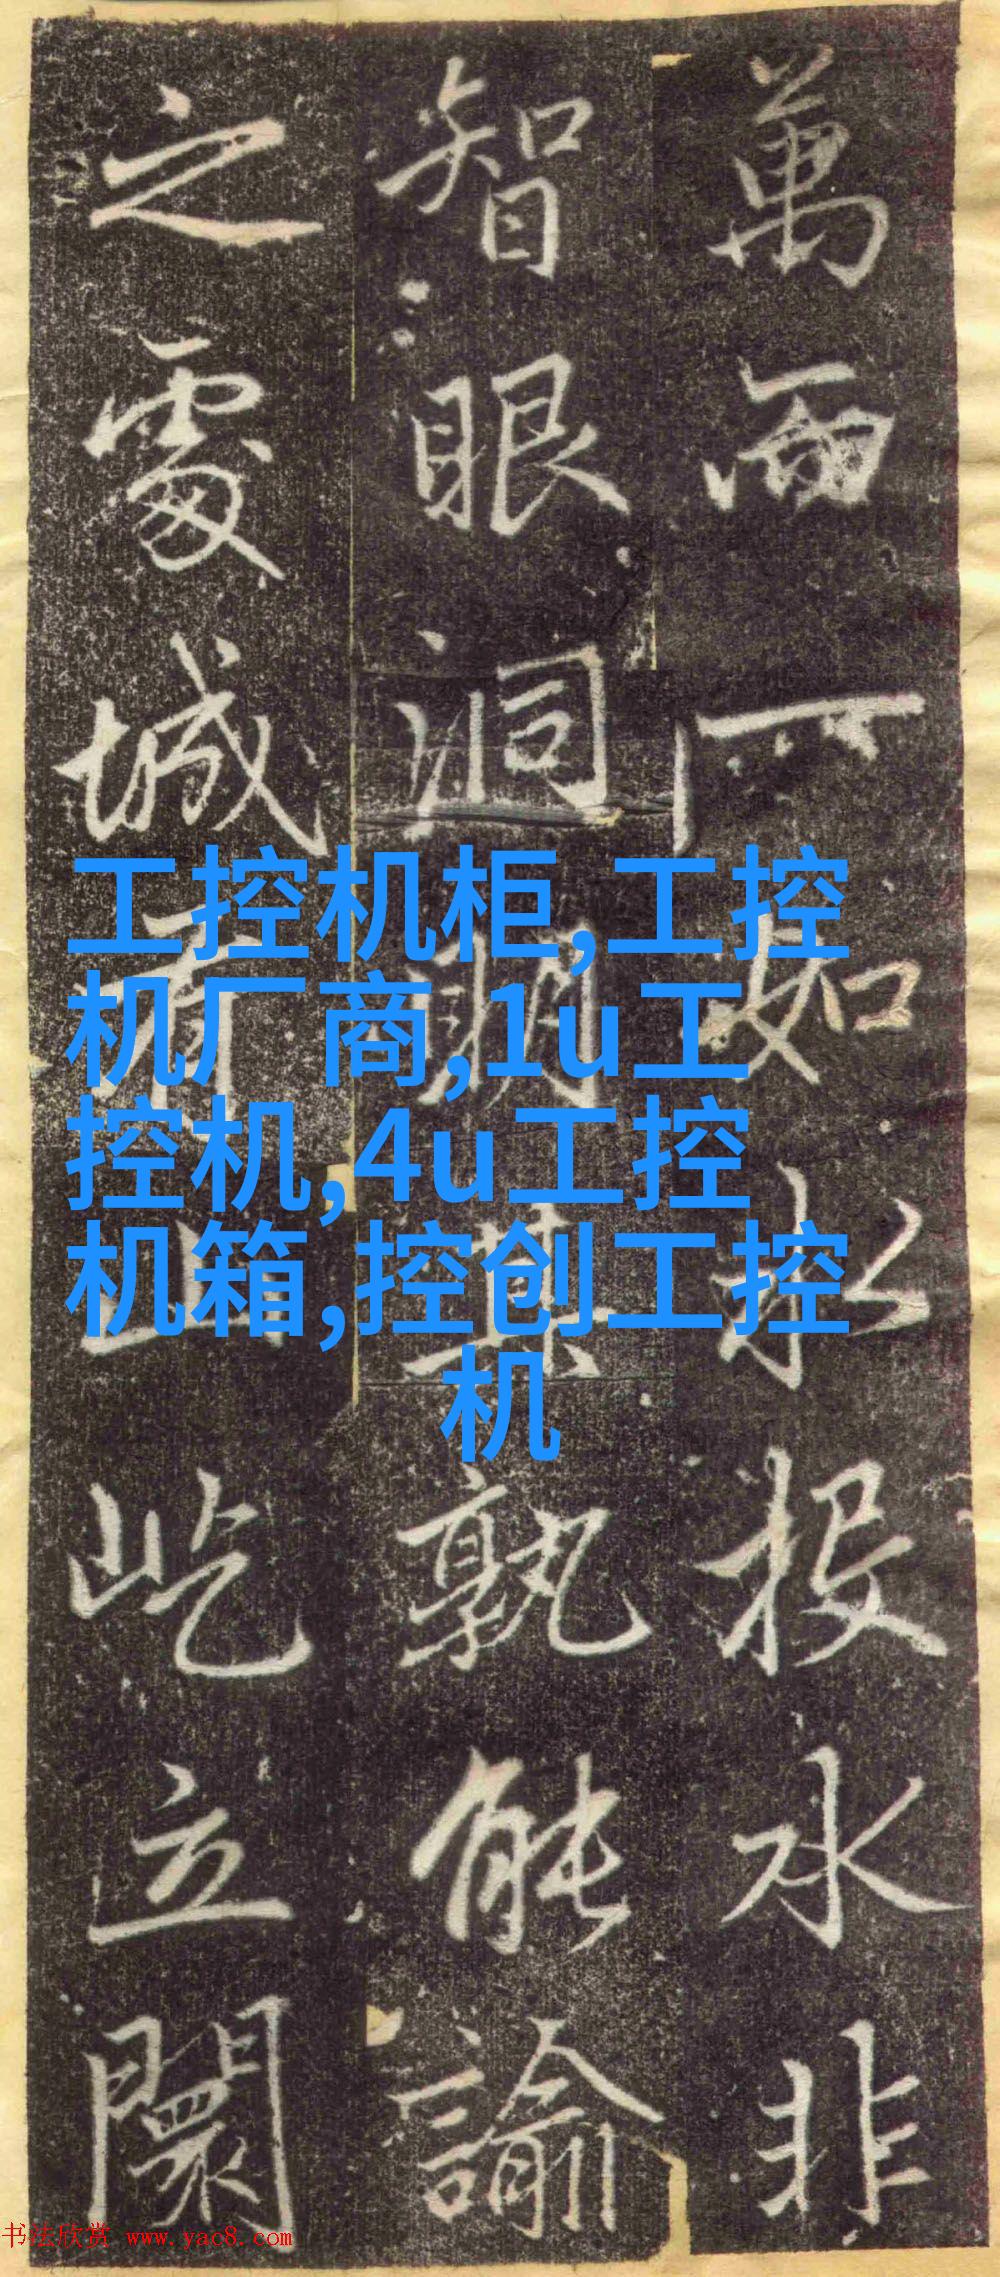 萬而一如水投水非
智眼洞明其孰能諭
之處城有山屹立闤
工控机柜,工控
机厂商,1u工
控机,4u工控
机箱,控创工控
机
书法欣赏 www.yac8.com